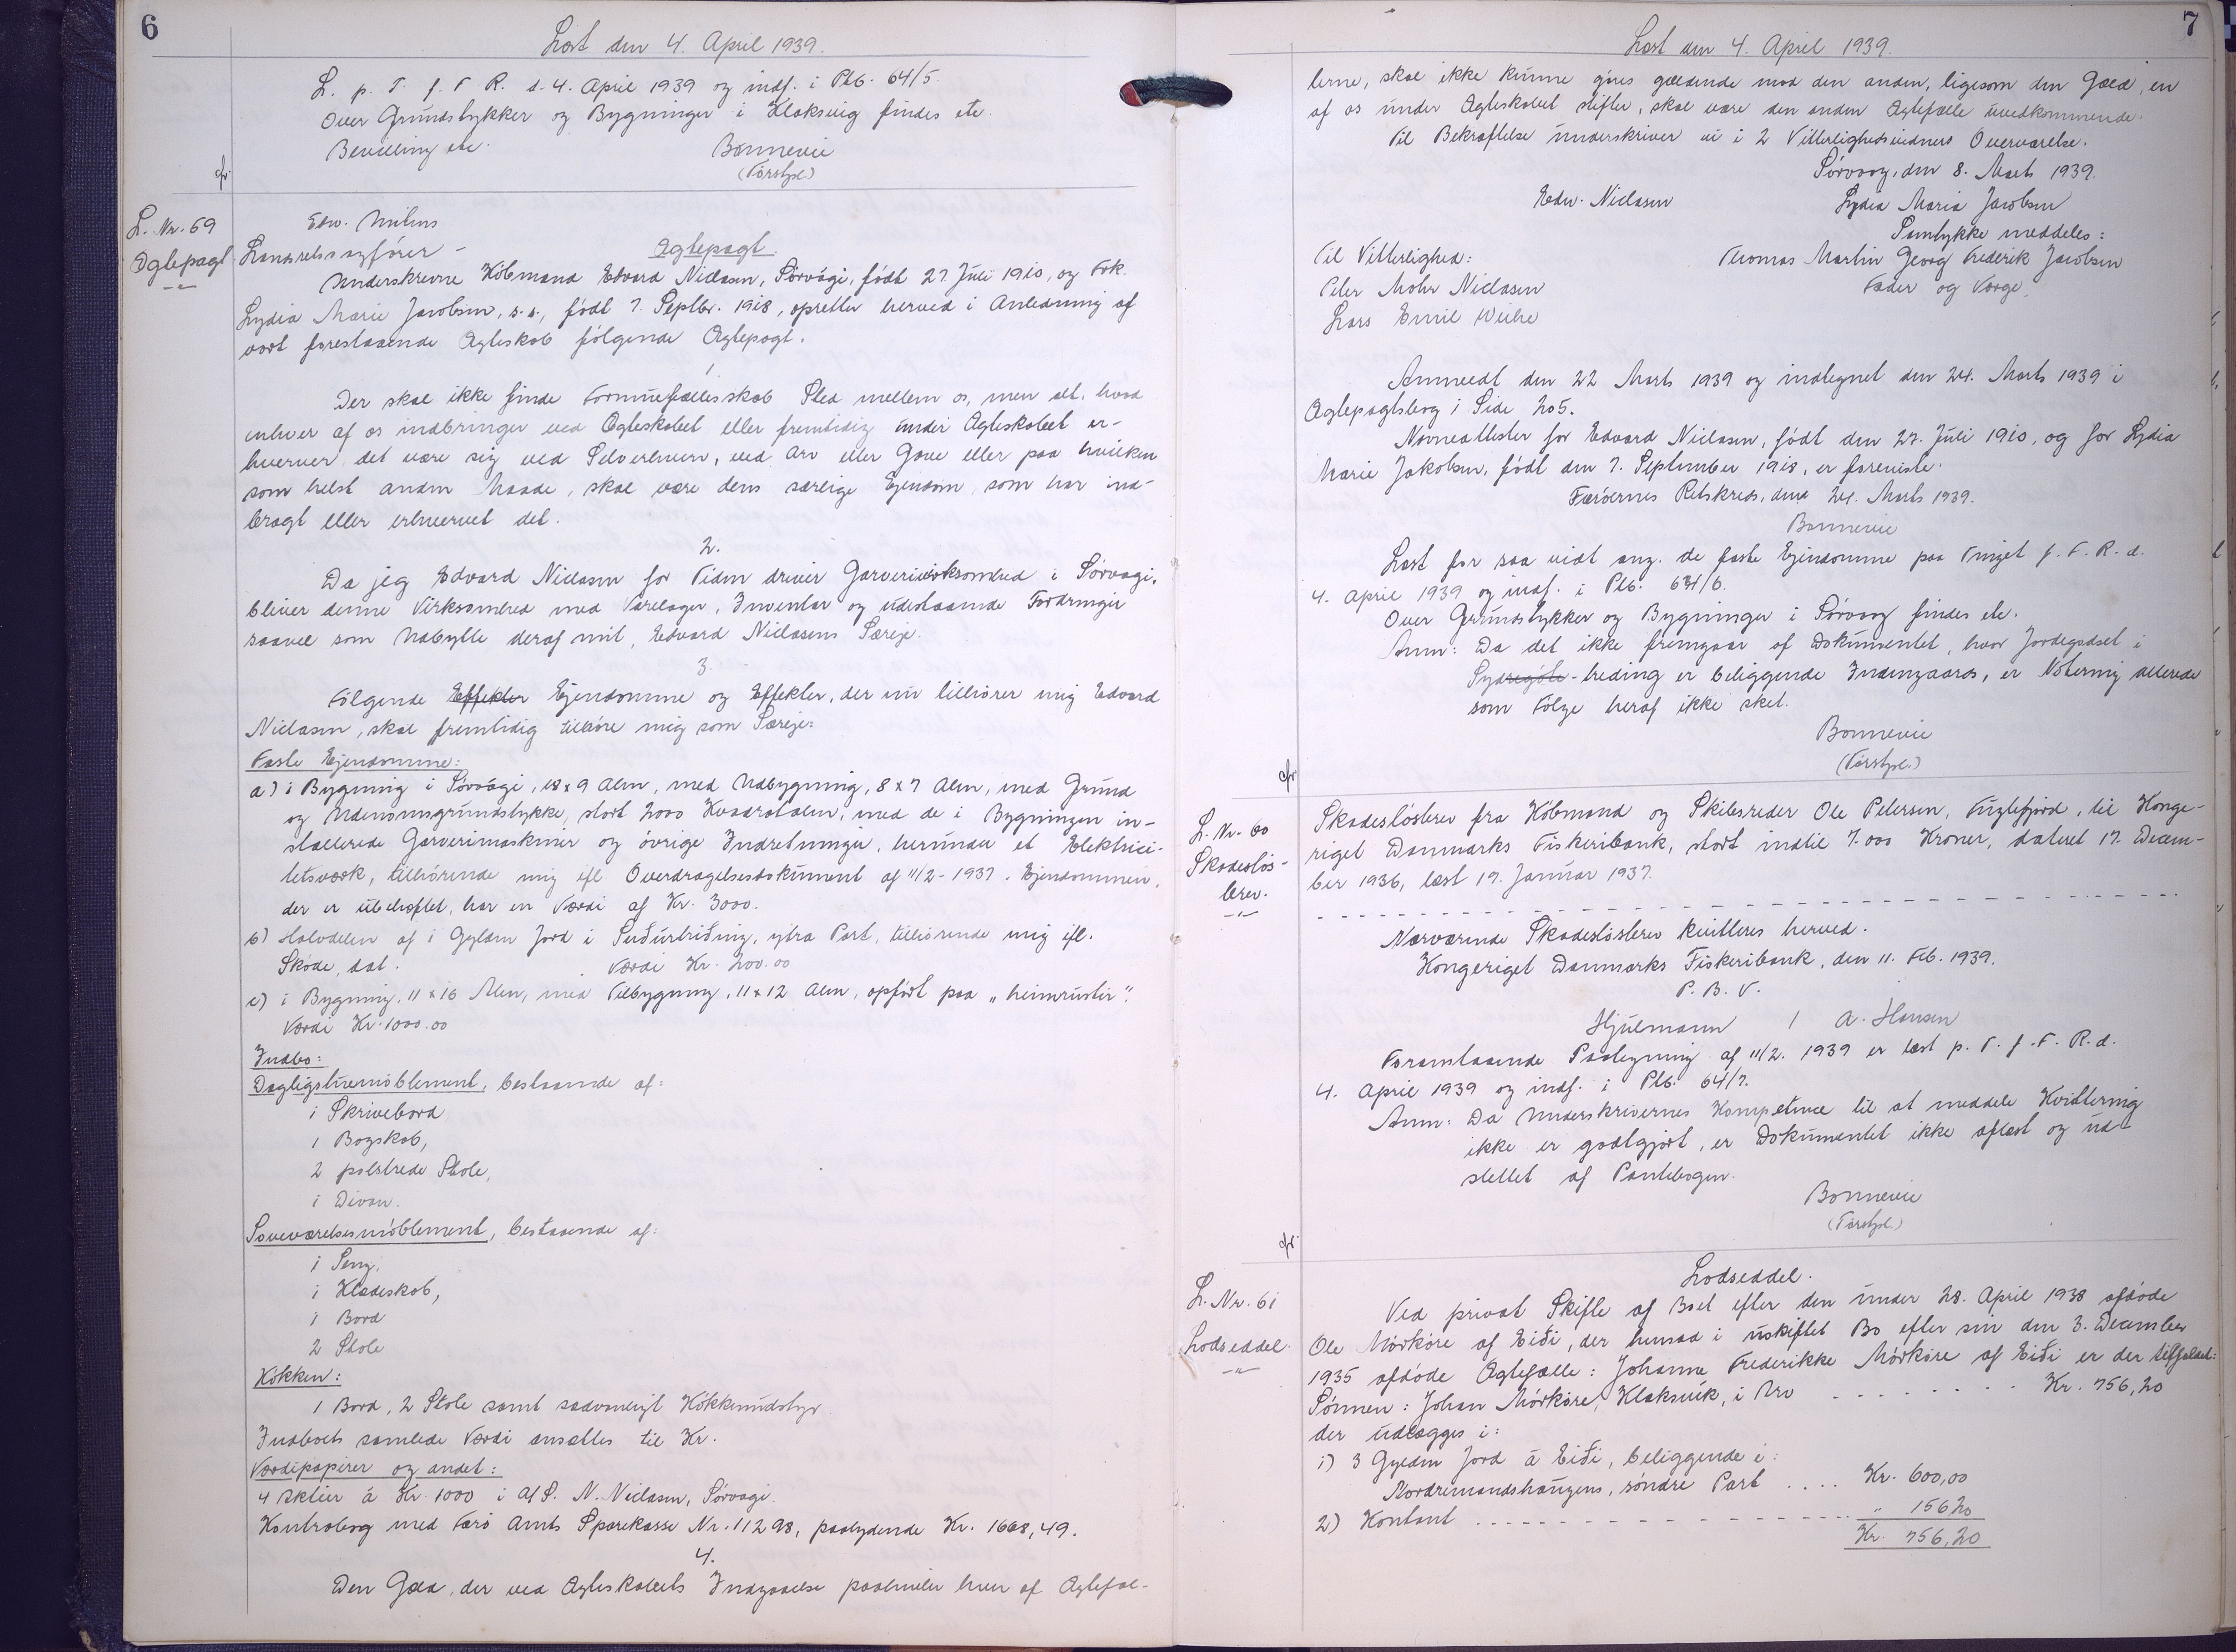 6
Læst den 4. April 1939.
L. p. T. f. F. R. d. 4. April 1939 og indf. i Ptb. 64/5.
Over Grundstykker og Bygninger i Klaksvig findes etc.
Bevilling etc.
Bonnevie
(Førstpl.)
cfr.
L. Nr. 59
Ægtepagt
Edw. Mitens
Landsretssagfører -
Ægtepagt.
Underskrevne Købmand Edvard Niclasen, Sørvági, født 27. Juli 1910, og Frk.
Lydia Marie Jacobsen, s.s., født 7. Septbr. 1918, opretter herved i Anledning af
vort forestaaende Ægteskab følgende Ægtepagt.
1
Der skal ikke finde Formuefællesskab Sted mellem os, men alt, hvad
enhver af os indbringer ved Ægteskabet eller fremtidig under Ægteskabet er-
hverver, det være sig ved Selverhverv, ved Arv eller Gave eller paa hvilken
som helst anden Maade, skal være dens særlige Ejendom, som har ind-
bragt eller erhvervet det.
2.
Da jeg Edvard Niclasen for Tiden driver Garverivirksomhed i Sørvagi,
bliver denne Virksomhed med Varelager, Inventar og udestaaende Fordringer
saavel som Udbytte deraf mit, Edvard Niclasens Særeje.
3.
Følgende Effekter Ejendomme og Effekter, der nu tilhører mig Edvard
Niclasen, skal fremtidig tilhøre mig som Særeje:
Faste Ejendomme:
a) 1 Bygning i Sørvági, 18 x 9 Alen, med Udbygning, 8 x 7 Alen, med Grund
og Udenomsgrundstykke, stort 2000 Kvadratalen, med de i Bygningen in-
stallerede Garverimaskiner og øvrige Indretninger, herunder et Elektrici-
tetsværk, tilhørende mig ifl. Overdragelsesdokument af 11/2 - 1937. Ejendommen,
der er ubehæftet, har en Værdi af Kr. 3000.
b) Halvdelen af 1 Gylden Jord i Suðurtriðing, ytra Part, tilhørende mig ifl.
Skøde, dat. Værdi Kr. 200.00
c) 1 Bygning, 11 x 16 Alen, med Tilbygning, 11 x 12 Alen, opført paa „heimrustir".
Værdi Kr. 1000.00
Indbo:
Dagligstuemøblement, bestaaende af:
1 Skrivebord
1 Bogskab,
2 polstrede Stole,
1 Divan.
Soveværelsesmøblement, bestaaende af:
1 Seng,
1 Klædeskab,
1 Bord
2 Stole
Køkken:
1 Bord, 2 Stole samt sædvanligt Køkkenudstyr
Indboets samlede Værdi ansættes til Kr.
Værdipapirer og andet:
4 Aktier á Kr. 1000 i A/S. N. Niclasen, Sørvagi.
Kontrabog med Færø Amts Sparekasse Nr. 11298, paalydende Kr. 1668,49.
4.
Den Gæld, der ved Ægteskabets Indgaaelse paahviler hver af Ægtefæl-
7
Læst den 4. April 1939.
lerne, skal ikke kunne gøres gældende mod den anden, ligesom den Gæld, en
af os under Ægteskabet stifter, skal være den anden Ægtefælle uvedkommende.
Til Bekræftelse underskriver vi i 2 Vitterlighedsvidners Overværelse.
Sørvaag, den 8. Marts 1939.
Edw. Niclasen Lydia Maria Jacobsen
Samtykke meddeles:
Til Vitterlighed: Thomas Martin Georg Frederik Jacobsen
Peter Mohr Niclasen Fader og Værge.
Lars Emil Weihe
Anmeldt den 22 Marts 1939 og indtegnet den 24. Marts 1939 i
Ægtepagtsbog 1 Side 205.
Navneattester for Edvard Niclasen, født den 27. Juli 1910, og for Lydia
Marie Jakobsen, født den 7. September 1918, er foreviste.
Færøernes Retskreds, den 24. Marts 1939.
Bonnevie
Læst for saa vidt ang. de faste Ejendomme paa Tinget f. F. R. d.
4. April 1939 og indf. i Ptb. 64/6.
Over Grundstykker og Bygninger i Sørvaag findes etc.
Anm: Da det ikke fremgaar af Dokumentet, hvor Jordegodset i
-treding er beliggende Indengaards, er Notering allerede
som Følge heraf ikke sket.
Bonnevie
(Førstpl.)
cfr.
L. Nr. 60
Skadesløs-
brev.
Skadesløsbrev fra Købmand og Skibsreder Ole Petersen, Fuglefjord, til Konge-
riget Danmarks Fiskeribank, stort indtil 7.000 Kroner, dateret 17. Decem-
ber 1936, læst 19. Januar 1937.
Nærværende Skadesløsbrev kvitteres herved.
Kongeriget Danmarks Fiskeribank, den 11. Feb. 1939.
P. B. V.
Hjulmann / A. Hansen
Foranstaaende Paategning af 11/2. 1939 er læst p. T. f. F. R. d.
4. April 1939 og indf. i Ptb. 64/7.
Anm: Da Underskrivernes Kompetence til at meddele Kvittering
ikke er godtgjort, er Dokumentet ikke aflæst og ud-
slettet af Pantebogen.
Bonnevie
(Førstpl.)
cfr.
L. Nr. 61
Lodseddel.
Lodseddel.
Ved privat Skifte af Boet efter den under 28. April 1938 afdøde
Ole Mörköre af Eiði, der hensad i uskiftet Bo efter sin den 3. December
1935 afdøde Ægtefælle: Johanne Frederikke Mörköre af Eiði er der tilfaldet:
Sønnen: Johan Mörköre, Klaksvík, i Arv Kr. 756,20
der udlægges i:
1) 3 Gylden Jord á Eiði, beliggende i:
Nordremandshaugens, søndre Part .... Kr. 600,00
2) Kontant " 156,20
Kr. 756,20